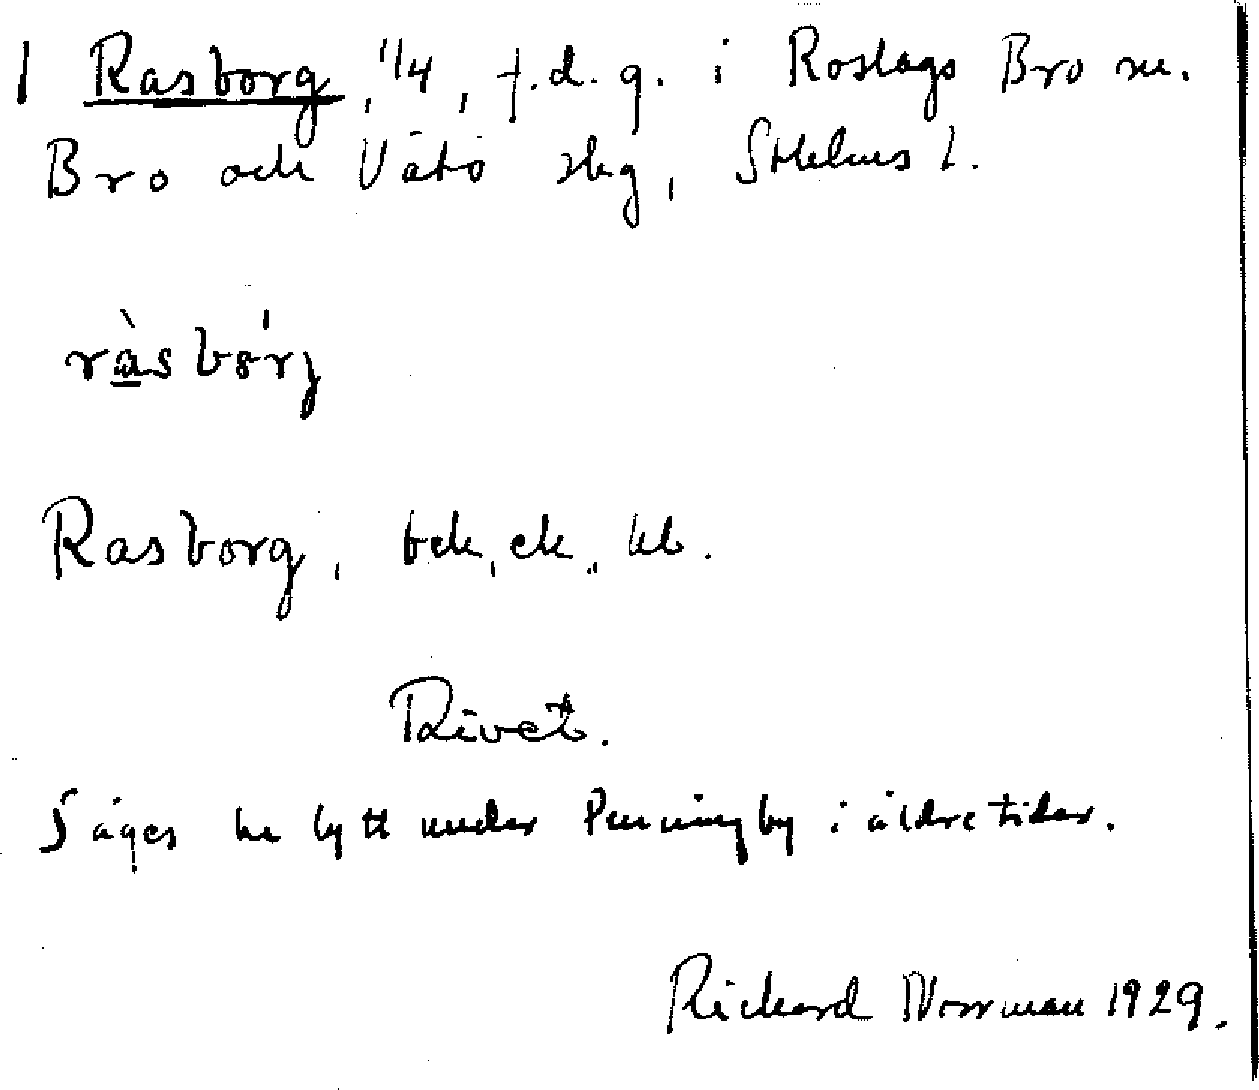 1 Rasborg, 1/4, f.d. g. i Roslags Bro sn.
Bro och Vätö skg, Sthlms l.
ràsbórj
Rasborg, bck, ek., kb.
Rivet.
Säges ha lytt under Penningby i äldre tider.
Rickard Norrman 1929.